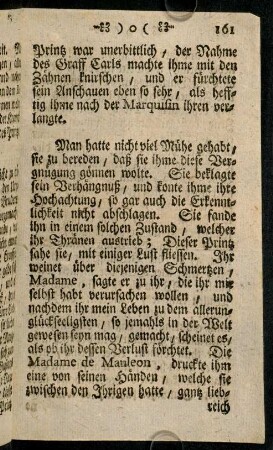 )o( 161
Printz war unerbittlich, der Nahme
des Graff Carls machte ihme mit den
Zähnen knirschen, und er fürchtete
sein Anschauen eben so sehr, als heff-
tig ihne nach der Marquisin ihren ver-
langte.
Man hatte nicht viel Mühe gehabt,
sie zu bereden, daß sie ihme diese Ver-
gnügung gönnen wolte. Sie beklagte
sein Verhängnuß, und konte ihme ihre
Hochachtung, so gar auch die Erkennt-
lichkeit nicht abschlagen. Sie fande
ihn in einem solchen Zustand, welcher
ihr Thränen austrieb; Dieser Printz
sahe sie, mit einiger Lust fliessen. Ihr
weinet über diejenigen Schmertzen,
Madame, sagte er zu ihr, die ihr mir
selbst habt verursachen wollen, und
nachdem ihr mein Leben zu dem allerun-
glückseeligsten, so jemahls in der Welt
gewesen seyn mag, gemacht, scheinet es,
als ob ihr dessen Verlust förchtet. Die
Madame de Mauleon, druckte ihm
eine von seinen Händen, welche sie
zwischen den Ihrigen hatte, gantz lieb-
reich